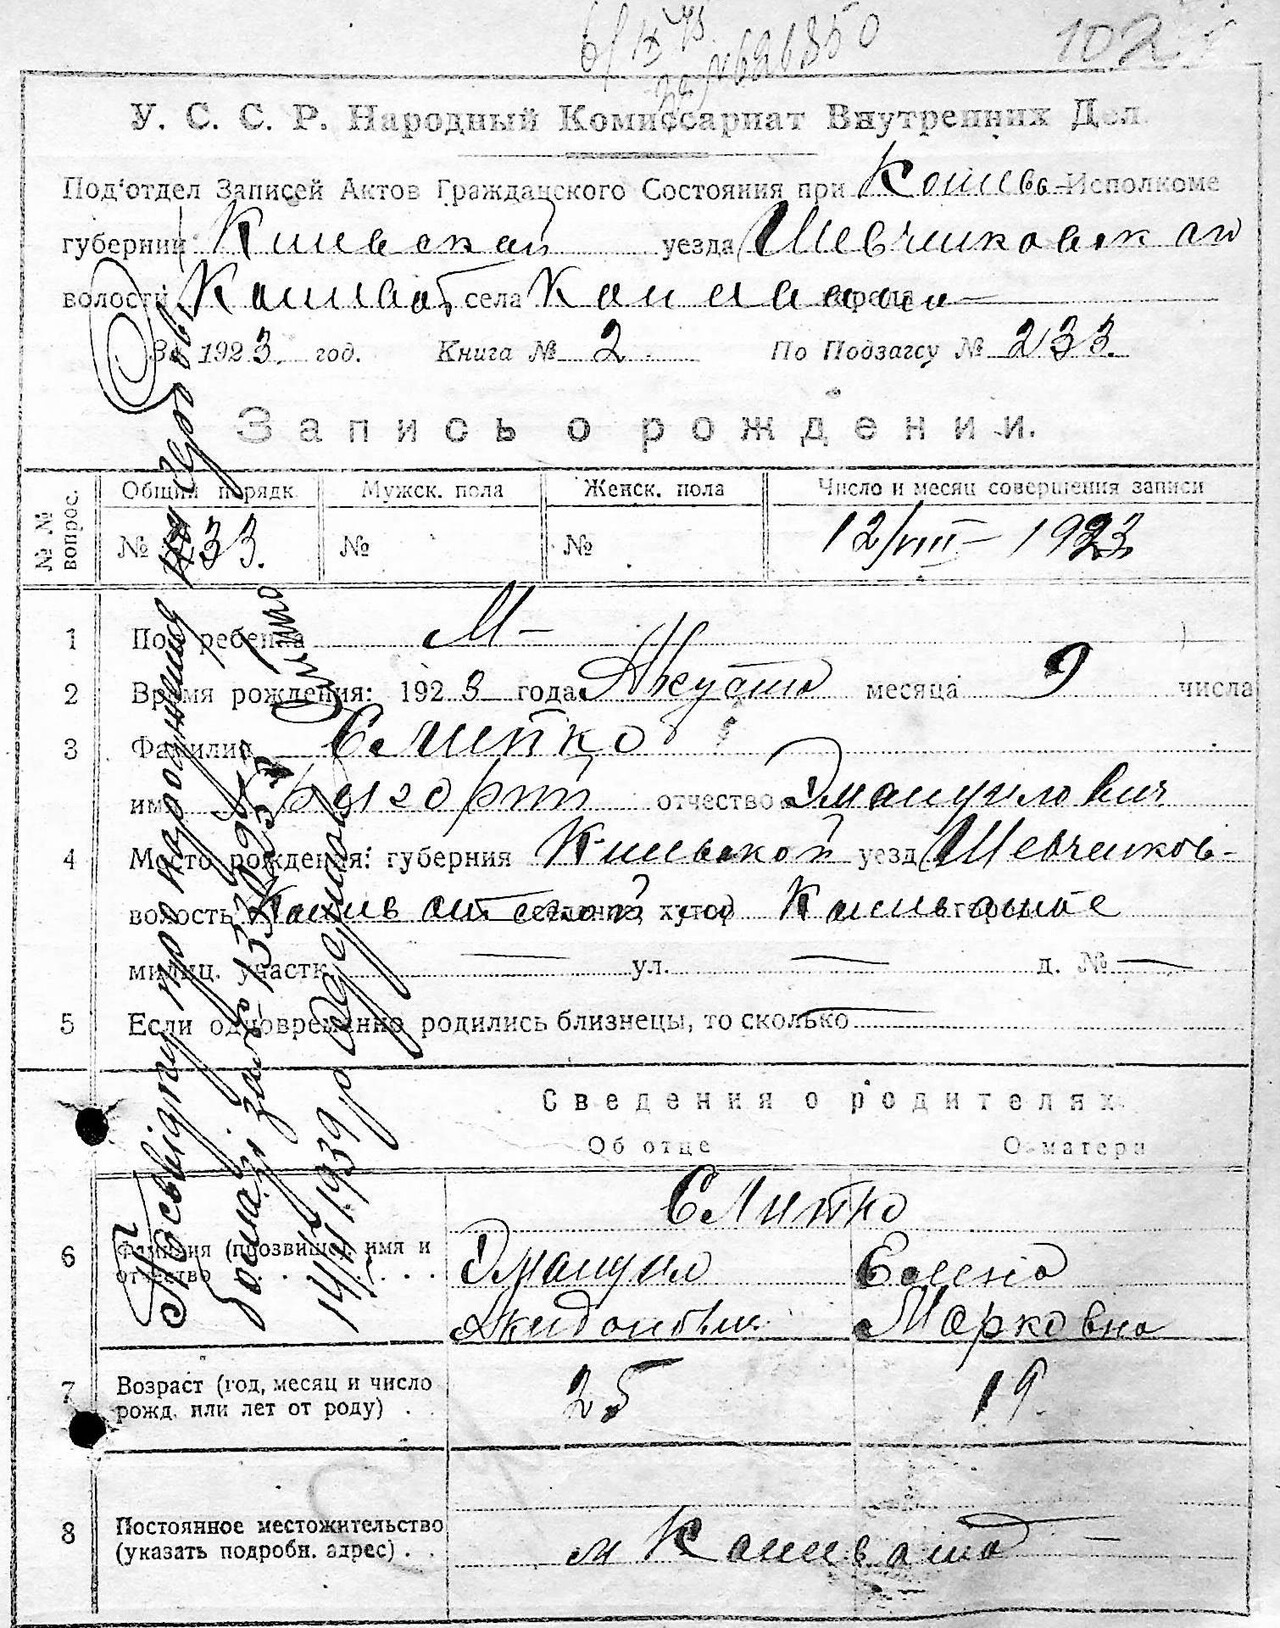 102
У. С. С. Р. Народный Комиссариат Внутренних Дел.
Под'отдел Записей Актов Гражданского Состояния при Кошев Исполкоме
губернии Киевской уезда Шевченковск
волости села
За 1923 год. Книга № 2 По Подзагсу № 233
Запись о рождении.
№ № вопрос.
Общий порядк. Мужск. пола Женск. пола Число и месяц совершения записи
№ 233. № № 12/VIII – 1923
1 Пол ребенка М–
2 Время рождения: 1923 года Августа месяца 9 числа
3 Фамилия Слипко
имя Григорий отчество Эмануилович
4 Место рождения: губерния Киевской уезд Шевченков-
волость селение, хутор город
милиц. участк. — ул. — д. № —
5 Если одновременно родились близнецы, то сколько —
Сведения о родителях
Об отце О матери
Слипко
6 Фамилия (прозвище), имя и отчество
Эмануил Елена
Марковна
7 Возраст (год, месяц и число рожд. или лет от роду) 25 19
8 Постоянное местожительство (указать подробн. адрес)
м
Посвідку про народження
14/VI 1939 р одержав